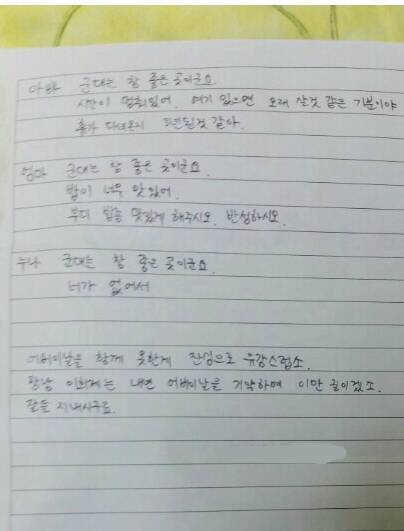 아빠 군대는 참 좋은 곳이군요.
시간이 멈춰있어. 여기 있으면 오래 살것 같은 기분이야
휴가 다녀온지 5년된것 같아.
엄마 군대는 참 좋은 곳이군요.
밥이 너무 맛있어.
부디 밥을 맛있게 해주시오. 반성하시오.
누나 군대는 참 좋은 곳이군요
너가 없어서
어버이날을 함께 못한게 진심으로 유감스럽소.
장남 이희제는 내년 어버이날을 기약하며 이만 줄이겠소.
잘들 지내시구료.